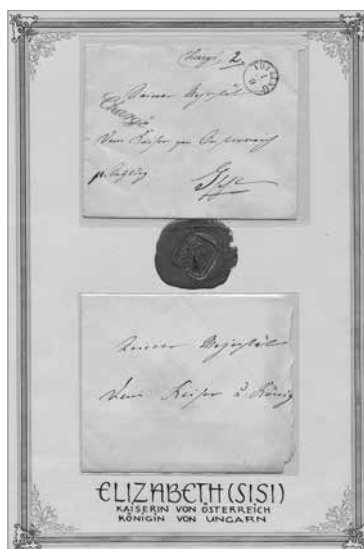 Chargé, 2
Seiner Majestät
Chargé
Dem Kaiser von Oesterreich
Ischl
Seiner Majestät
Dem Kaiser u. König
ELIZABETH (SISI)
KAISERIN VON ÖSTERREICH
KÖNIGIN VON UNGARN